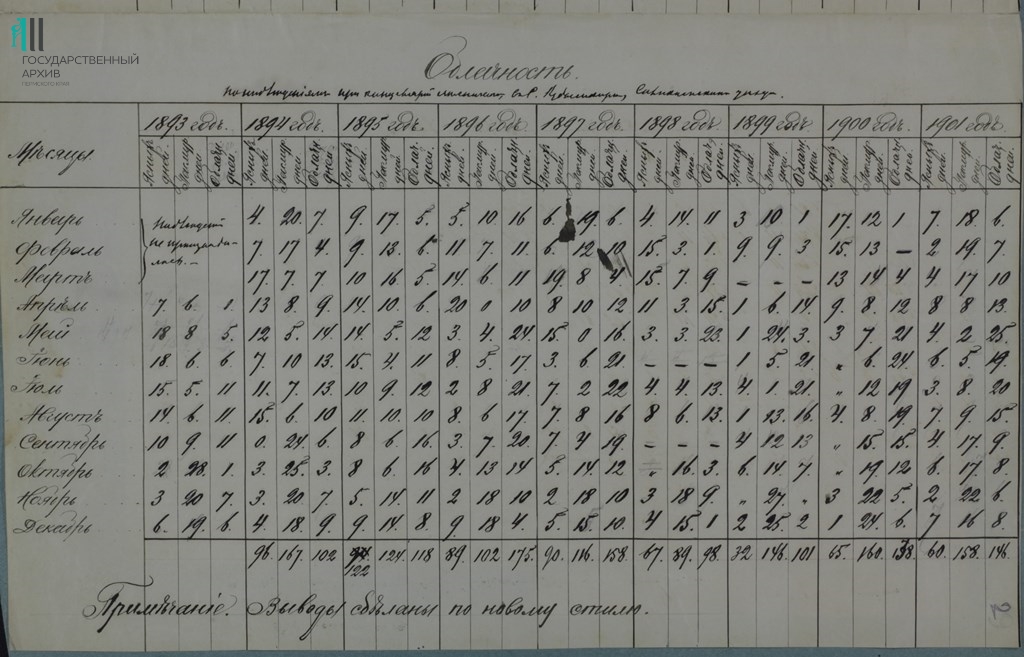 ГОСУДАРСТВЕННЫЙ
АРХИВ
ПЕРМСКОГО КРАЯ
Облачность.
по наблюденіямъ при
Мѣсяцы 1893 годъ. 1894 годъ. 1895 годъ. 1896 годъ. 1897 годъ. 1898 годъ. 1899 годъ. 1900 годъ. 1901 годъ.
Январь 4. 20. 7. 9. 17 5. 5. 10 16 6. 19. 6. 4. 14. 11 3 10 1 17. 12 1 7. 18 6.
наблюденій
Февраль 7. 17 4. 9 13. 6. 11 7. 11. 6. 12 10. 15. 3. 1. 9. 9. 3 15. 13 — 2 19. 7.
не производи-
лось. —
Мартъ 17. 7. 7. 10 16 5. 14. 6. 11 19. 8 4. 15. 7 9. — — — 13 14 4 4 17 10
Апрѣль 7 6. 1. 13 8 9. 14. 10. 6. 20 0 10 8 10 12 11 3. 15. 1 6 14 9. 8. 12 8 8 13.
Май 18 8 5. 12 5. 14 14. 5. 12 3. 4. 24. 15. 0 16 3. 3. 23. 1 24. 3. 3 7. 21 4 2 25.
Іюнь 18. 6. 6. 7. 10 13. 15. 4 11 8. 5. 17. 3. 6. 21. — — — 1 5. 21 „ 6. 24. 6. 5 19.
Іюль 15. 5. 11 11. 7. 13. 10 9. 12 2 8 21. 7. 2 22 4 4 13. 4. 1. 21. „ 12 19 3. 8. 20
Августъ 14 6. 11. 15. 6 10 11. 10. 10 8. 6 17 7. 8 16 8 6. 13. 1 13. 16 4. 8 19 7. 9. 15.
Сентябрь 10 9. 11 0. 24. 6. 8 6. 16. 3. 7. 20. 7. 4 19. — — — 4 12 13 „ 15. 15. 4 17. 9.
Октябрь 2 28. 1. 3. 25. 3. 8 6. 16 4. 13 14 5. 14. 12 „ 16. 3. 6. 14 7. „ 19 12 6. 17. 8
Ноябрь 3 20 7. 3. 20. 7 5. 14 11 2 18 10 2 18 10 3 18 9. „ 27. „ 3 22 5. 2. 22 6.
Декабрь 6. 19. 6. 4. 18. 9. 9. 14. 8. 9 18 4. 5. 15. 10. 4 15. 1 2 25. 2 1 24. 6. 7 16 8.
96. 167. 102 124. 118 89. 102 175. 90. 116. 158. 67. 89. 98. 32. 146. 101 65. 160. 138. 60. 158. 146.
122
Примѣчаніе. Выводы сдѣланы по новому стилю.